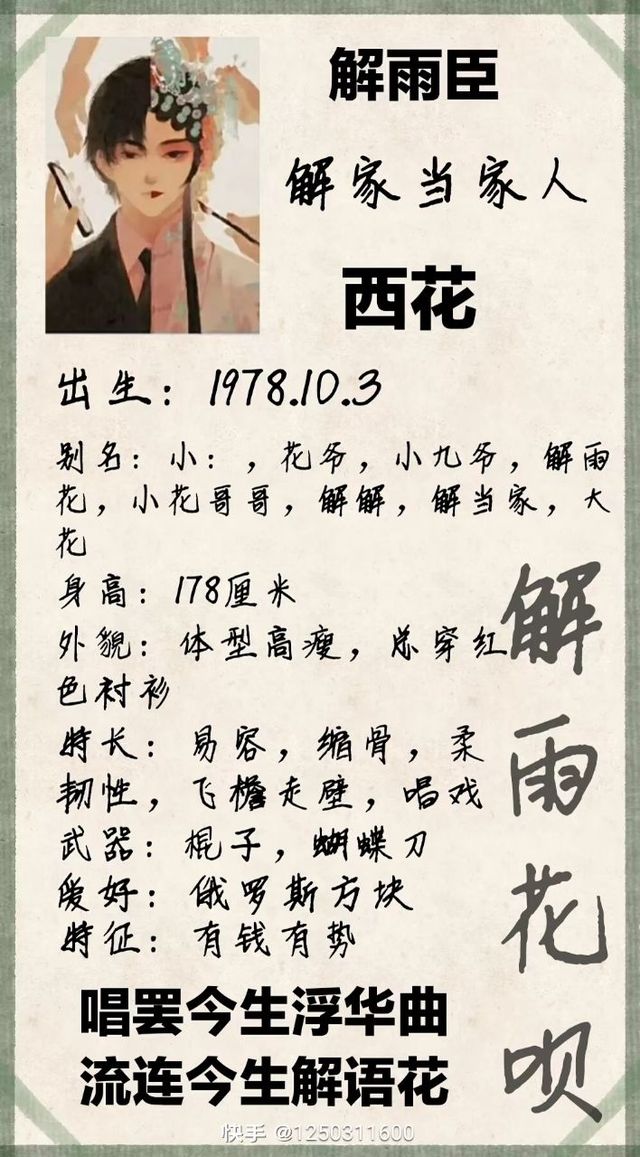 解雨臣
解家当家人
西花
出生：1978.10.3
别名：小：，花爷，小九爷，解雨
花，小花哥哥，解解，解当家，大
花
身高：178厘米
外貌：体型高瘦，总穿红
色衬衫
特长：易容，缩骨，柔
韧性，飞檐走壁，唱戏
武器：棍子，蝴蝶刀
爱好：俄罗斯方块
特征：有钱有势
解雨花呗
唱罢今生浮华曲
流连今生解语花
快手 @1250311600